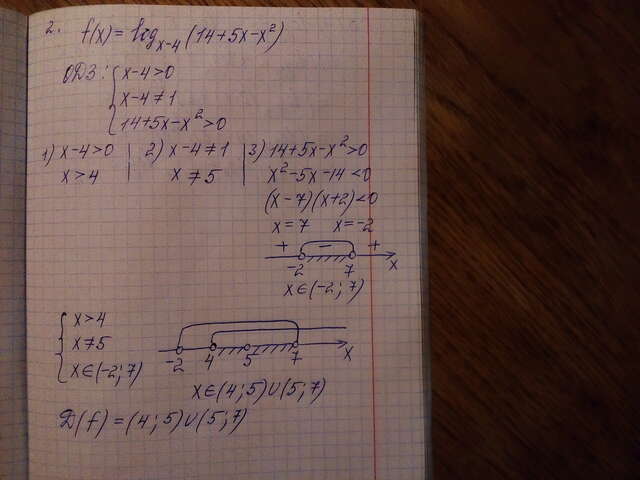 2. f(x) = log_{x-4}(14+5x-x²)
ОДЗ: { x-4>0
x-4≠1
14+5x-x²>0
1) x-4>0 | 2) x-4≠1 | 3) 14+5x-x²>0
x>4 | x≠5 | x²-5x-14<0
(x-7)(x+2)<0
x=7 x=-2
+ - +
-2 7 x
x∈(-2; 7)
{ x>4
x≠5
x∈(-2; 7)
-2 4 5 7 x
x∈(4; 5)∪(5; 7)
D(f) = (4; 5)∪(5; 7)